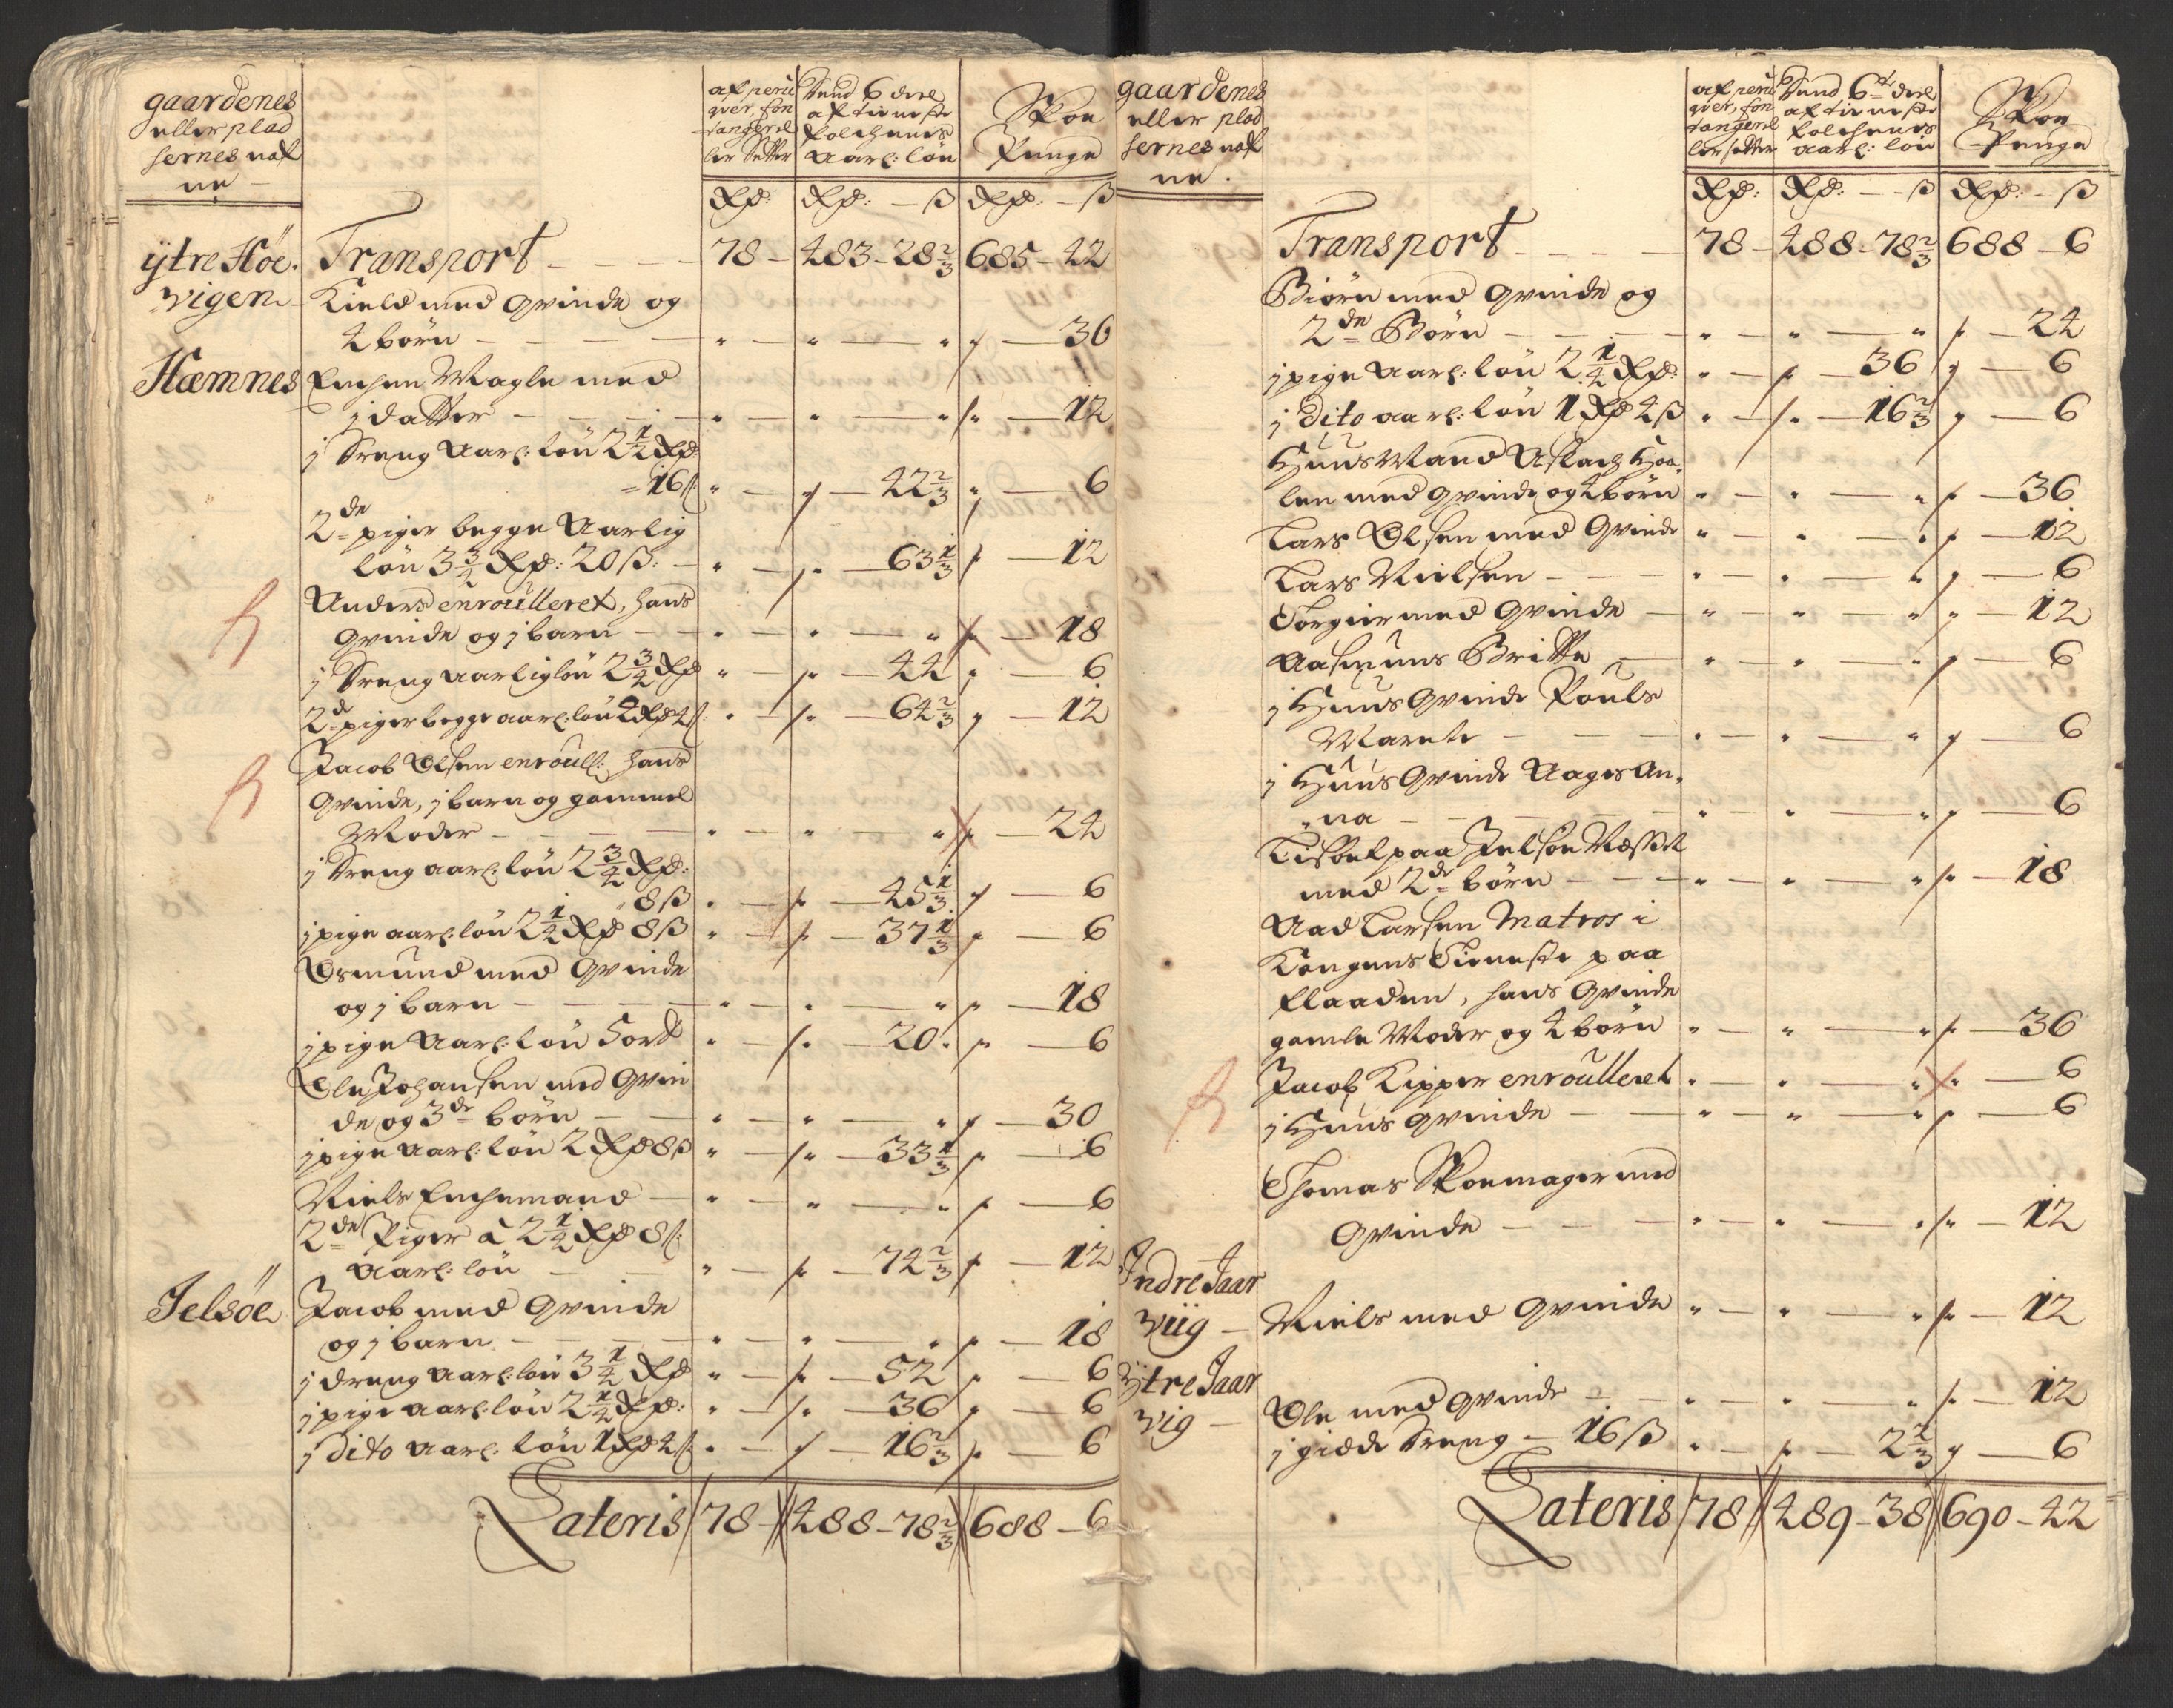 gaardenes
eller plad
sernes naf
ne
af peru
qver, fon
tanger el
ler Setter
Hvend 6 deel
af tieneste
folchenes
Aarl: løn
Skoe
Penge
Rd:
Rd: — ß
Rd: — ß
ÿtre Høe. Transport — 78 — 483 — 28 2/3 685 — 42
vigen Kield med Qvinde og
4 børn — " — " — " " — 36
Hæmnes Enchen Magle med
j datter — " — " — " " — 12
j dreng Aarl: løn 2 1/2 Rd:
= 16 ß " — " — 42 2/3 " — 6
2de piger begge Aarlig
løn 3 3/4 Rd: 20 ß: — " — " — 63 1/3 " — 12
Anders enroulleret, hans
Qvinde og j barn — " — " — " " — 18
j dreng aarlig løn 2 3/4 Rd " — " — 44 " — 6
2de piger begge aarl: løn 4 Rd 4 ß " — " — 64 2/3 " — 12
Jacob Olsen enroull: hans
Qvinde, j barn og gammel
Moder — " — " — " " — 24
j dreng aarl: løn 2 3/4 Rd:
8 ß " — " — 45 1/3 " — 6
j pige aarl: løn 2 1/4 Rd 8 ß " — " — 37 1/3 " — 6
Osmund med Qvinde
og j barn — " — " — " " — 18
j pige Aarl: løn 5 ort " — " — 20 " — 6
Ole Johansen med Qvin
de og 3de børn — " — " — " " — 30
j pige Aarl: løn 2 Rd 8 ß " — " — 33 1/3 " — 6
Niels Enchemand — " — " — " " — 6
2de Piger a 2 1/4 Rd 8 ß:
Aarl: løn — " — " — 74 2/3 " — 12
Jelsøe Jacob med Qvinde
og j barn — " — " — " " — 18
j dreng Aarl: løn 3 1/4 Rd " — " — 52 " — 6
j pige aarl: løn 2 1/4 Rd: " — " — 36 " — 6
j dito aarl: løn 1 Rd 4 ß " — " — 16 2/3 " — 6
Lateris 78 — 488 — 78 2/3 688 — 6
gaardenes
eller plad
sernes naf
ne.
af peru
qver, fon
tanger el
ler setter
Hvend 6te deel
af tieneste
folchenes
aarl: løn
Skoe
Penge
Rd:
Rd: — ß
Rd: — ß
Transport — 78 — 488 — 78 2/3 688 — 6
Biørn med Qvinde og
2de Børn — " — " — " " — 24
j pige Aarl: løn 2 1/4 Rd: " — " — 36 " — 6
j dito aarl: løn 1 Rd 4 ß " — " — 16 2/3 " — 6
Huus Mand Aslach Hoe,
len med Qvinde og 4 børn " — " — " " — 36
Lars Olsen med Qvinde " — " — " " — 12
Lars Nielsen — " — " — " " — 6
Torgier med Qvinde — " — " — " " — 12
Aasmuns Britte — " — " — " " — 6
j Huus Qvinde Pouls
Marete — " — " — " " — 6
j Huus Qvinde Aages An,
na — " — " — " " — 6
Lisbet paa Jelsøe Næsset
med 2de børn — " — " — " " — 18
Aad Larsen Matros i
Kongens Tieneste paa
flaaden, hans Qvinde
gamle Moder og 4 børn " — " — " " — 36
Jacob Kipper enroulleret " — " — " " — 6
j Huus Qvinde — " — " — " " — 6
Thomas Skoemager med
Qvinde — " — " — " " — 12
Indre Jaar
viig — Niels med Qvinde " — " — " " — 12
ÿtre Jaar
vig — Ole med Qvinde — " — " — " " — 12
j giæde dreng — 16 ß " — " — 2 2/3 " — 6
Lateris 78 489 — 38 690 — 42